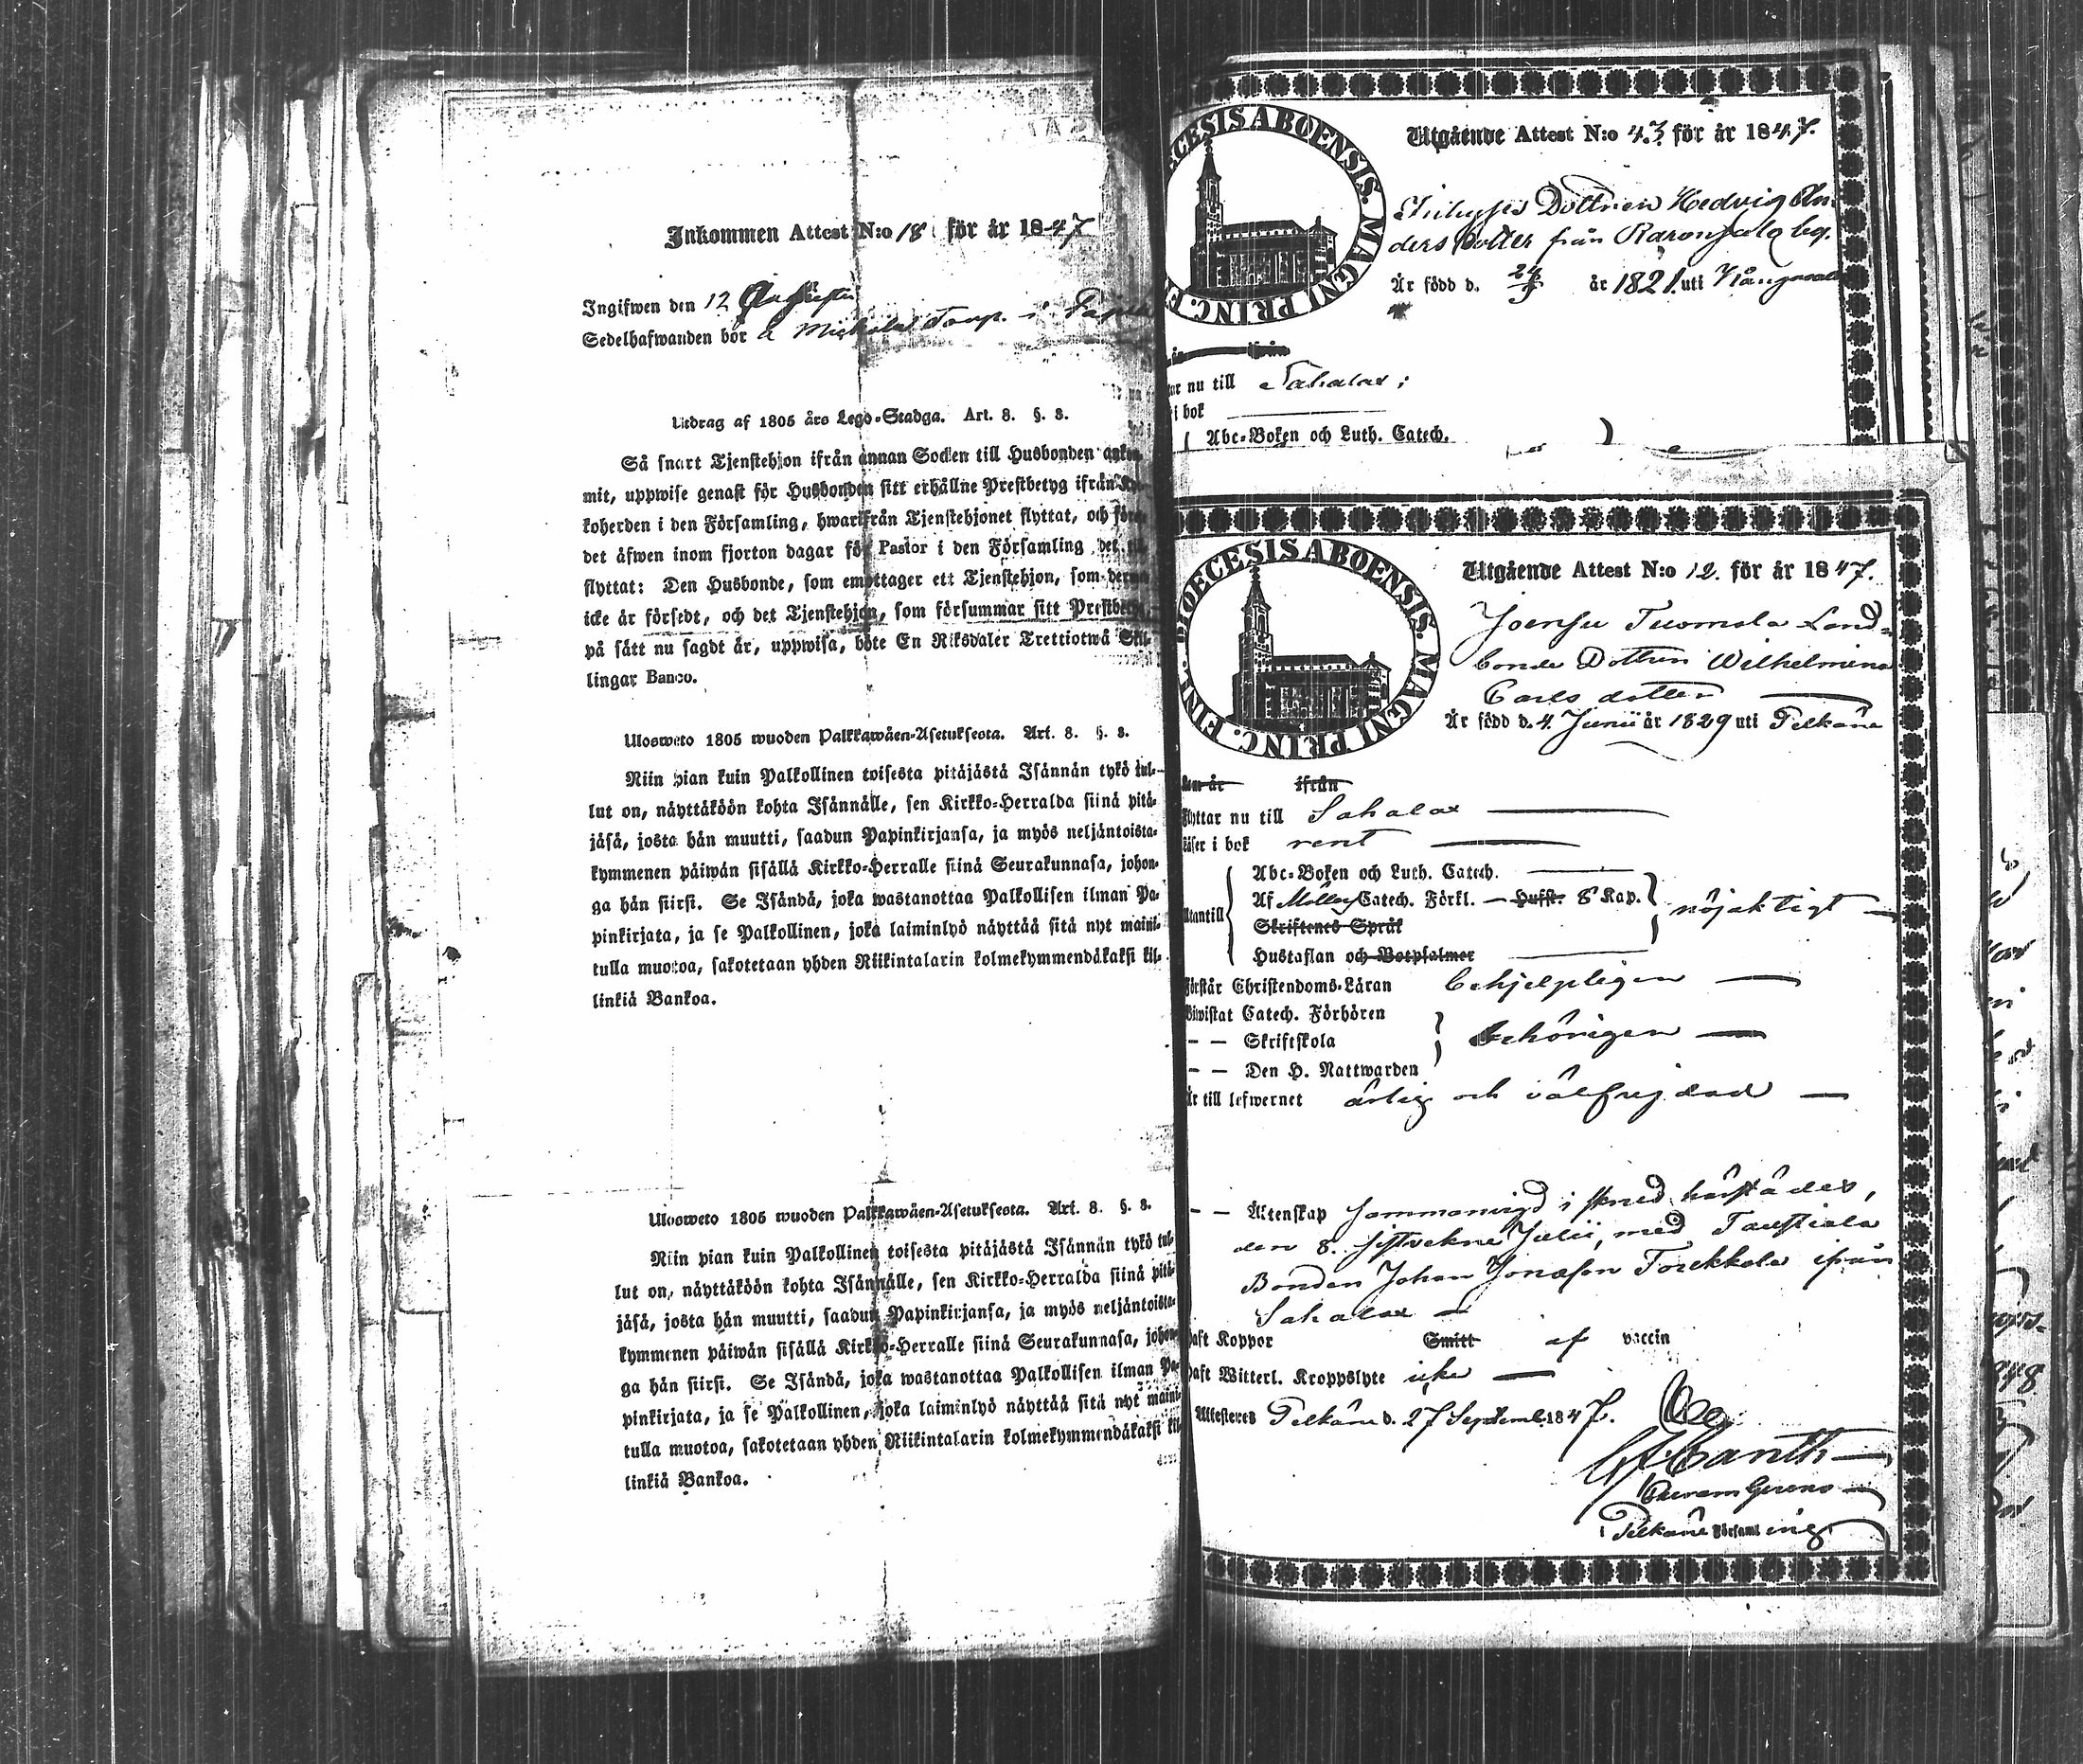 Inkommen Attest N:o 18 för år 1847
Ingifwen den 12
Sedelhafwanden bör å Torp. i
Utdrag af 1805 års Lego-Stadga. Art. 8. §. 8.
Så snart Tjenstehjon ifrån annan Socken till Husbonden
mit, uppwise genast för Husbonden sitt erhållne Prestbetyg ifrån
koherden i den Församling, hwarifrån Tjenstehjonet flyttat, och
det äfwen inom fjorton dagar för Pastor i den Församling det
flyttat: Den Husbonde, som emottager ett Tjenstehjon, som
icke är försedt, och det Tjenstehjon, som försummar sitt
på sätt nu sagdt är, uppwisa, böte En Riksdaler Trettiotwå Skil-
lingar Banco.
Ulosweto 1805 wuoden Palkkawäen-Asetuksesta. Art. 8. §. 8.
Niin pian kuin Palkollinen toisesta pitäjästä Isännän tykö tul-
lut on, näyttäköön kohta Isännälle, sen Kirkko-Herralda siinä pitä-
jäsä, josta hän muutti, saadun Papinkirjansa, ja myös neljäntoista-
kymmenen päiwän sisällä Kirkko-Herralle siinä Seurakunnasa, johon-
ga hän siirsi. Se Isändä, joka wastanottaa Palkollisen ilman Pa-
pinkirjata, ja se Palkollinen, joka laiminlyö näyttää sitä nyt maini-
tulla muotoa, sakotetaan yhden Riikintalarin kolmekymmendäkaksi kil-
linkiä Bankoa.
Ulosweto 1805 wuoden Palkkawäen-Asetuksesta. Art. 8. §. 8.
Niin pian kuin Palkollinen toisesta pitäjästä Isännän tykö tul-
lut on, näyttäköön kohta Isännälle, sen Kirkko-Herralda siinä pitä-
jäsä, josta hän muutti, saadun Papinkirjansa, ja myös neljäntoista-
kymmenen päiwän sisällä Kirkko-Herralle siinä Seurakunnasa, johon-
ga hän siirsi. Se Isändä, joka wastanottaa Palkollisen ilman Pa-
pinkirjata, ja se Palkollinen, joka laiminlyö näyttää sitä nyt maini-
tulla muotoa, sakotetaan yhden Riikintalarin kolmekymmendäkaksi kil-
linkiä Bankoa.
ECESIS ABOENSIS. MAGNI PRINC. F
Utgående Attest N:o 43 för år 1847.
Dottren Hedvig An-
ders Dotter från
Är född d. 24 år 1821. uti
ifrån
nu till Sahalax;
i bok
Abc-Boken och Luth. Catech.
DIOECESIS ABOENSIS. MAGNI PRINC. FINL.
Utgående Attest N:o 12. för år 1847.
Joensu Tuomola Land-
bonde Dottren Wilhelmina
Carls dotter
Är född d. 4 Junii år 1829 uti Pelkäne
ifrån
flyttar nu till Sahalax
läser i bok rent
Abc-Boken och Luth. Catech.
Utantill Af Möllers Catech. Förkl. — Hufst. 8 Kap. nöjaktigt
Skriftenes Språk
Hustaflan och Botpsalmer
Förstår Christendoms-Läran behjelpligen
Biwistat Catech. Förhören
— — Skriftskola behörigen
— — Den H. Nattwarden
Är till lefwernet ärlig och välfrejdad
— — Äktenskap sammanvigd i stånd härstädes,
den 8. sistvekne Julii, med Taustiala
Bonden Johan Jonasson Torekkala ifrån
Sahalax
haft Koppor Smitt af vaccin
haft Witterl. Kroppslyte icke
Attesteres Pelkäne d. 27 Septemb. 1847.
i Pelkäne Församling